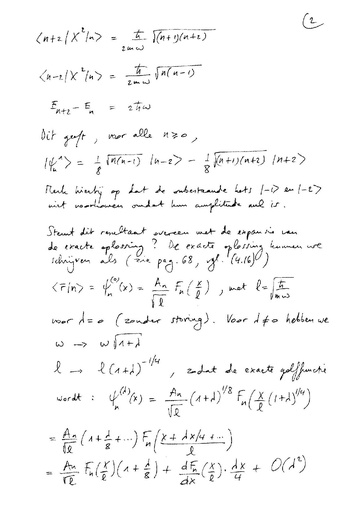 (2
⟨n+2|X²|n⟩ = ħ/2mω √(n+1)(n+2)
⟨n-2|X²|n⟩ = ħ/2mω √n(n-1)
E_{n+2} - E_n = 2ħω
Dit geeft, voor alle n ≥ 0,
|ψ_n^1⟩ = 1/8 √n(n-1) |n-2⟩ - 1/8 √(n+1)(n+2) |n+2⟩
Merk hierbij op dat de onbestaande kets |-1⟩ en |-2⟩
niet voorkomen omdat hun amplitude nul is.
Stemt dit resultaat overeen met de expansie van
de exacte oplossing? De exacte oplossing kunnen we
schrijven als (zie pag. 68, vgl. (4.16))
⟨r̄|n⟩ = ψ_n^{(0)}(x) = A_n/√l F_n(x/l), met l = √ħ/mω
voor λ=0 (zonder storing). Voor λ≠0 hebben we
ω → ω√1+λ
l → l(1+λ)^{-1/4}, zodat de exacte golffunctie
wordt: ψ_n^{(λ)}(x) = A_n/√l (1+λ)^{1/8} F_n(x/l (1+λ)^{1/4})
= A_n/√l (1+λ/8+...) F_n((x+λx/4+...)/l)
= A_n/√l F_n(x/l)(1+λ/8) + dF_n/dx (x/l)·λx/4 + O(λ²)